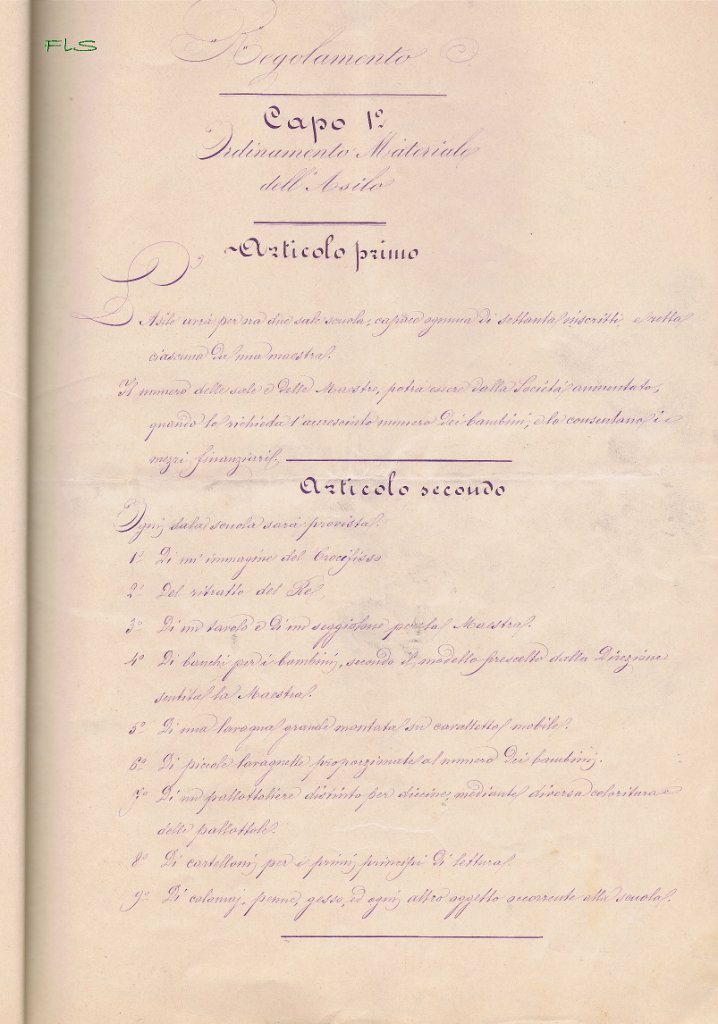 FLS
Regolamento
Capo 1º
Ordinamento Materiale
dell'Asilo
Articolo primo
L'Asilo avrà per ora due sale scuola, capace ognuna di settanta inscritti e retta
ciascuna da una maestra.
Il numero delle sale e delle Maestre, potrà essere dalla Società aumentato,
quando lo richieda l'accresciuto numero dei bambini, e lo consentano i
mezzi finanziarii.
Articolo secondo
Ogni sala scuola sarà provista.
1º Di un' immagine del Crocifisso
2º Del ritratto del Re
3º Di un tavolo e di un seggiolone per la Maestra.
4º Di banchi per i bambini, secondo il modello prescelto dalla Direzione
sentita la Maestra.
5º Di una lavagna grande montata su cavalletto mobile.
6º Di piccole lavagnette proporzionate al numero dei bambini.
7º Di un pallottoliere distinto per diecine, mediante diversa coloritura
delle pallottole.
8º Di cartelloni per i primi principi di lettura.
9º Di calamaj, penne, gesso, ed ogni altro oggetto occorrente alla scuola.